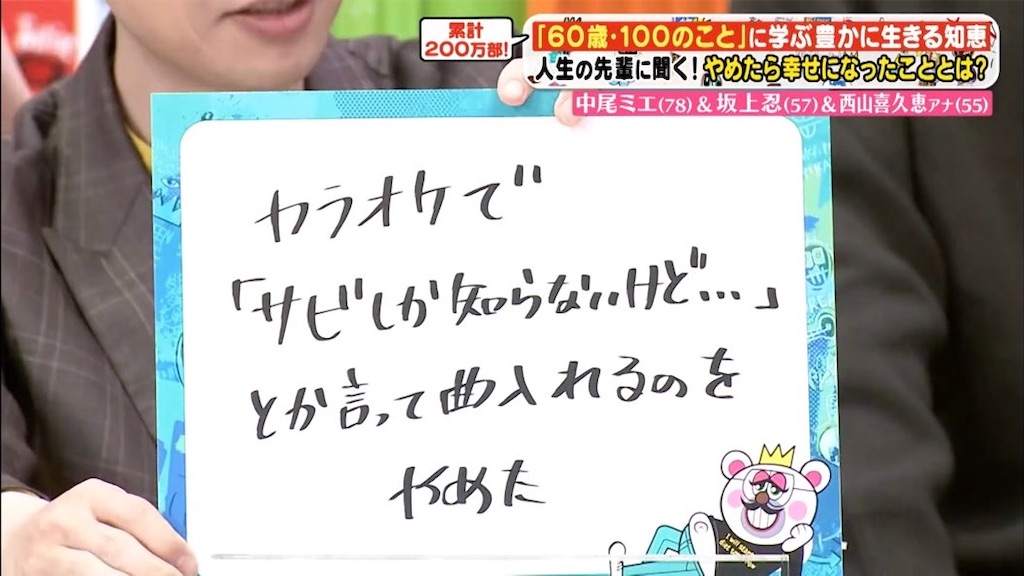 累計
200万部!
「60歳・100のこと」に学ぶ豊かに生きる知恵
人生の先輩に聞く!やめたら幸せになったこととは?
中尾ミエ(78)&坂上忍(57)&西山喜久恵アナ(55)
カラオケで
「サビしか知らないけど…」
とか言って曲入れるのを
やめた